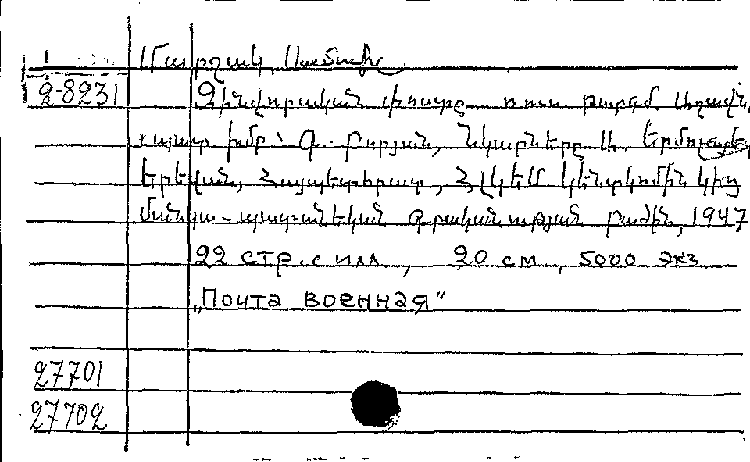 Մարշակ Սամուիլ
2-8231
Զինվորական փոստը ռուս թարգմ. Աղավն.
պատ. խմբ՝ Գ. Բորյան, նկարները Ա.
Երևան, Հայպետհրատ, ՀԼԿԵՄ կենտկոմին կից
մանկա-պատանեկան գրականության բաժին, 1947
22 стр. с илл., 20 см., 5000 экз
„Почта военная"
27701
27702